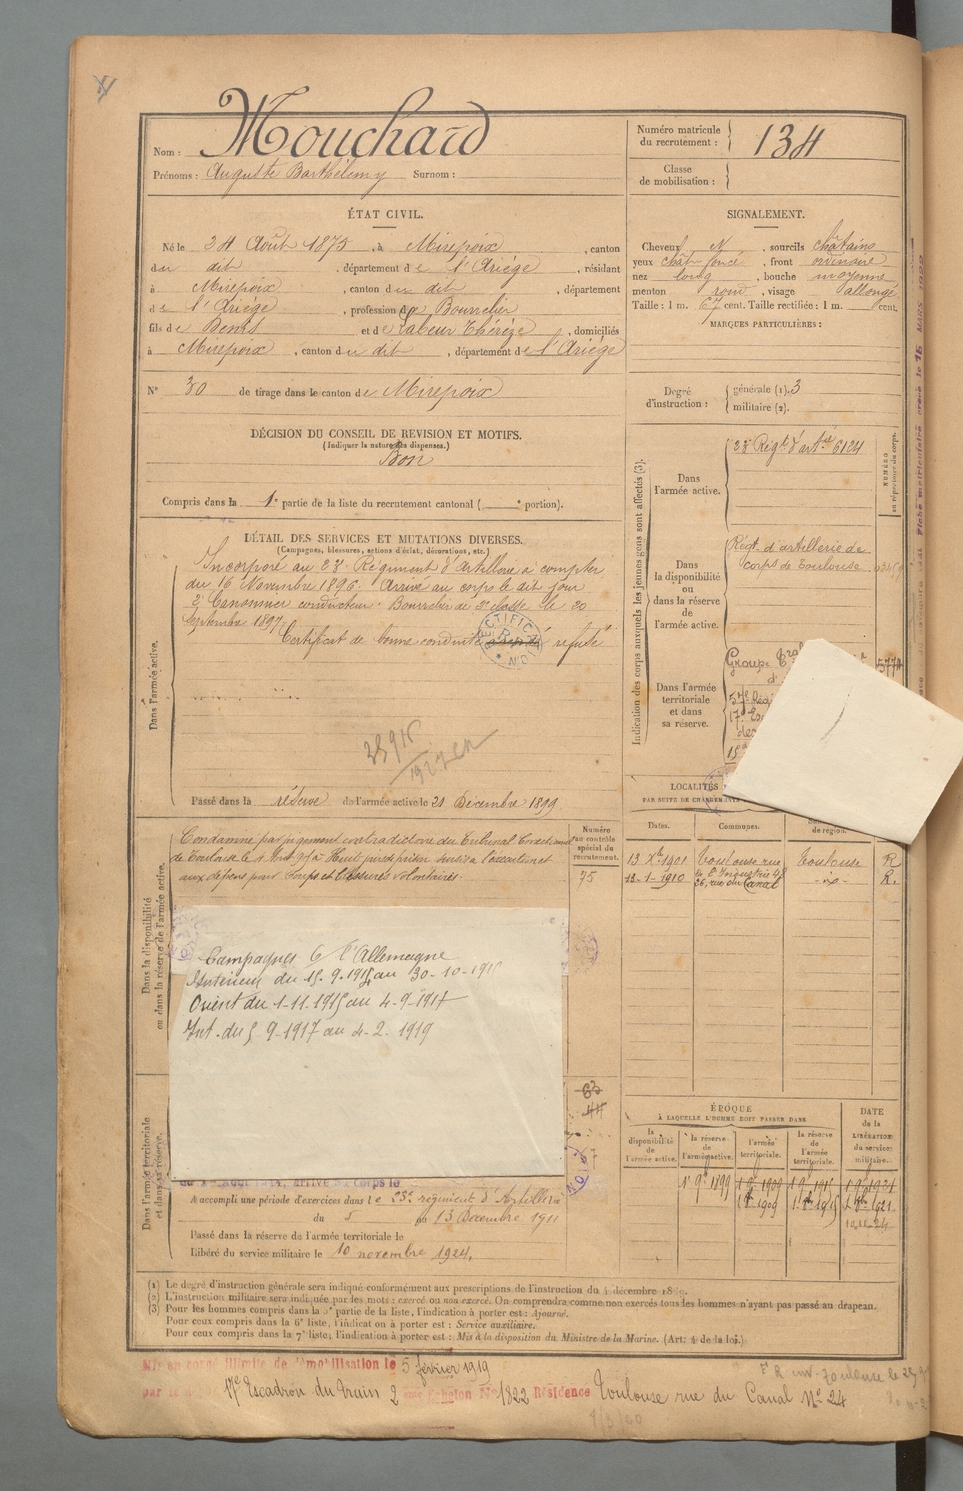 Nom : Mouchard
Prénoms : Auguste Barthélemy Surnom :
Numéro matricule du recrutement : 134
Classe de mobilisation :
ÉTAT CIVIL.
Né le 24 Août 1875, à Mirepoix, canton
du dit, département de l'Ariège, résidant
à Mirepoix, canton du dit, département
de l'Ariège, profession de Bourrelier
fils de Denis et de Thérèze, domiciliés
à Mirepoix, canton du dit, département de l'Ariège
N° 30 de tirage dans le canton de Mirepoix
SIGNALEMENT.
Cheveux N, sourcils châtains
yeux chat. foncé, front ordinaire
nez long, bouche moyenne
menton rond, visage allongé
Taille : 1 m. 67 cent. Taille rectifiée : 1 m. cent.
MARQUES PARTICULIÈRES :
Degré d'instruction : générale (1). 3
militaire (2).
DÉCISION DU CONSEIL DE REVISION ET MOTIFS.
(Indiquer la nature des dispenses.)
Bon
Compris dans la 1e partie de la liste du recrutement cantonal ( e portion).
DÉTAIL DES SERVICES ET MUTATIONS DIVERSES.
(Campagnes, blessures, actions d'éclat, décorations, etc.)
Dans l'armée active.
Incorporé au 23e Régiment d'Artillerie à compter
du 16 Novembre 1896. Arrivé au corps le dit jour
2e Canonnier conducteur. Bourrelier de 2e classe le 20
Septembre 1897.
Certificat de bonne conduite refusé
RECTIFICATION
Passé dans la réserve de l'armée active le 21 Décembre 1899
Indication des corps auxquels les jeunes gens sont affectés (3).
NUMÉRO
au répertoire du corps.
Dans l'armée active.
23e Régt d'artie 6124
Dans la disponibilité ou dans la réserve de l'armée active.
Régt d'artillerie de
corps de Toulouse
Dans l'armée territoriale et dans sa réserve.
Groupe
5774
LOCALITÉS
PAR SUITE DE CHANGEMENTS
Dates. Communes. de région.
13 Xbre 1901 Toulouse rue de l'Industrie Toulouse R
13-1-1910 36, rue du Canal -dº- R.
Dans la disponibilité
ou dans la réserve de l'armée active.
Numéro au contrôle spécial du recrutement.
75
Condamné par jugement contradictoire du Tribunal Correctionnel
de Toulouse le à Huit jours prison sursis à l'exécution et
aux dépens pour Coups et blessures volontaires.
Campagnes C l'Allemagne
Intérieur du 15.9.1914 au 30-10-1915
Orient du 1-11.1915 au 4-9-1917
Int. du 5 9-1917 au 4-2-1919
63
44
Dans l'armée territoriale
et dans sa réserve.
arrivé au Corps le
A accompli une période d'exercices dans le 23e régiment d'Artillerie
du 5 au 13 Décembre 1911
Passé dans la réserve de l'armée territoriale le
Libéré du service militaire le 10 novembre 1924.
ÉPOQUE
À LAQUELLE L'HOMME DOIT PASSER DANS
la disponibilité de l'armée active.
la réserve de l'armée active.
l'armée territoriale.
la réserve de l'armée territoriale.
DATE de la LIBÉRATION du service militaire.
(1) Le degré d'instruction générale sera indiqué conformément aux prescriptions de l'instruction du 4 décembre 1889.
(2) L'instruction militaire sera indiquée par les mots : exercé ou non exercé. On comprendra comme non exercés tous les hommes n'ayant pas passé au drapeau.
(3) Pour les hommes compris dans la 5e partie de la liste, l'indication à porter est : Ajourné.
Pour ceux compris dans la 6e liste, l'indication à porter est : Service auxiliaire.
Pour ceux compris dans la 7e liste, l'indication à porter est : Mis à la disposition du Ministre de la Marine. (Art. 4 de la loi.)
Mis en congé illimité de démobilisation le 5 février 1919
par le 17e Escadron du Train 2 eme Echelon No 1822 Résidence Toulouse rue du Canal No 24